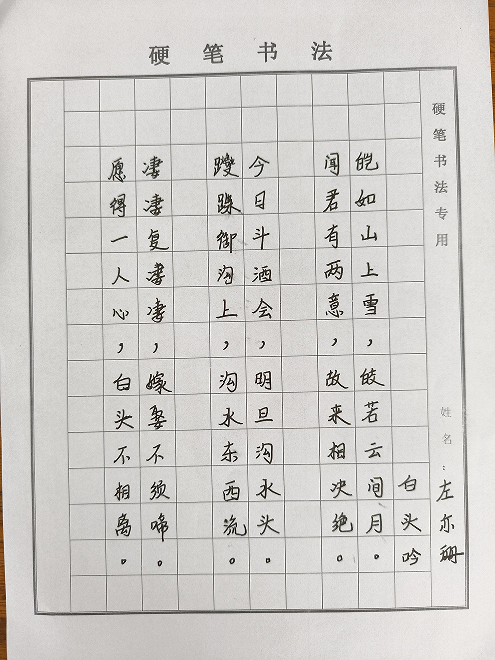 硬笔书法
硬笔书法专用
姓名：左亦珊
白头吟
皑如山上雪，皎若云间月。
闻君有两意，故来相决绝。
今日斗酒会，明旦沟水头。
躞蹀御沟上，沟水东西流。
凄凄复凄凄，嫁娶不须啼。
愿得一人心，白头不相离。